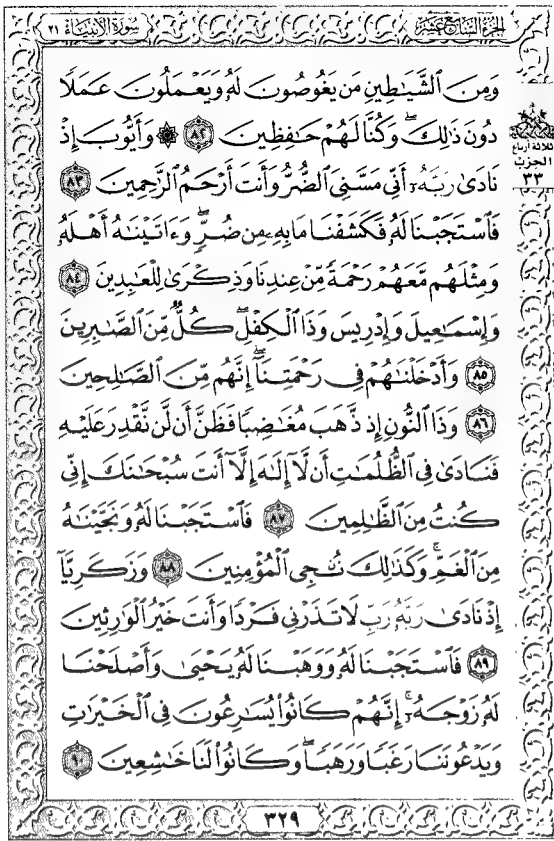 الجزء السابع عشر
سورة الأنبياء ٢١
وَمِنَ ٱلشَّيَٰطِينِ مَن يَغُوصُونَ لَهُۥ وَيَعْمَلُونَ عَمَلًا
دُونَ ذَٰلِكَۖ وَكُنَّا لَهُمْ حَٰفِظِينَ ٨٢ ۞ وَأَيُّوبَ إِذْ
نَادَىٰ رَبَّهُۥٓ أَنِّى مَسَّنِىَ ٱلضُّرُّ وَأَنتَ أَرْحَمُ ٱلرَّٰحِمِينَ ٨٣
فَٱسْتَجَبْنَا لَهُۥ فَكَشَفْنَا مَا بِهِۦ مِن ضُرٍّۖ وَءَاتَيْنَٰهُ أَهْلَهُۥ
وَمِثْلَهُم مَّعَهُمْ رَحْمَةً مِّنْ عِندِنَا وَذِكْرَىٰ لِلْعَٰبِدِينَ ٨٤
وَإِسْمَٰعِيلَ وَإِدْرِيسَ وَذَا ٱلْكِفْلِۖ كُلٌّ مِّنَ ٱلصَّٰبِرِينَ
٨٥ وَأَدْخَلْنَٰهُمْ فِى رَحْمَتِنَآۖ إِنَّهُم مِّنَ ٱلصَّٰلِحِينَ
٨٦ وَذَا ٱلنُّونِ إِذ ذَّهَبَ مُغَٰضِبًا فَظَنَّ أَن لَّن نَّقْدِرَ عَلَيْهِ
فَنَادَىٰ فِى ٱلظُّلُمَٰتِ أَن لَّآ إِلَٰهَ إِلَّآ أَنتَ سُبْحَٰنَكَ إِنِّى
كُنتُ مِنَ ٱلظَّٰلِمِينَ ٨٧ فَٱسْتَجَبْنَا لَهُۥ وَنَجَّيْنَٰهُ
مِنَ ٱلْغَمِّۚ وَكَذَٰلِكَ نُۨجِى ٱلْمُؤْمِنِينَ ٨٨ وَزَكَرِيَّآ
إِذْ نَادَىٰ رَبَّهُۥ رَبِّ لَا تَذَرْنِى فَرْدًا وَأَنتَ خَيْرُ ٱلْوَٰرِثِينَ
٨٩ فَٱسْتَجَبْنَا لَهُۥ وَوَهَبْنَا لَهُۥ يَحْيَىٰ وَأَصْلَحْنَا
لَهُۥ زَوْجَهُۥٓۚ إِنَّهُمْ كَانُوا۟ يُسَٰرِعُونَ فِى ٱلْخَيْرَٰتِ
وَيَدْعُونَنَا رَغَبًا وَرَهَبًاۖ وَكَانُوا۟ لَنَا خَٰشِعِينَ ٩٠
ثلاثة أرباع
الحزب
٣٣
٣٢٩